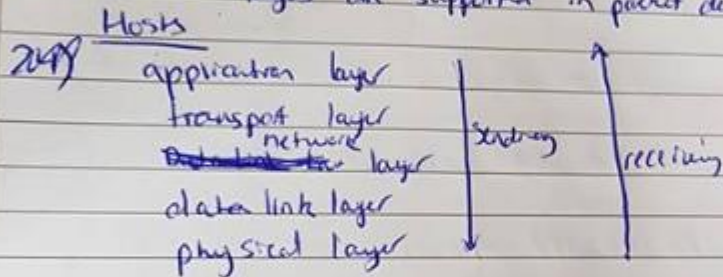 are supported in packet
Hosts
application layer
transport layer
network layer
data link layer
physical layer
sending
receiving